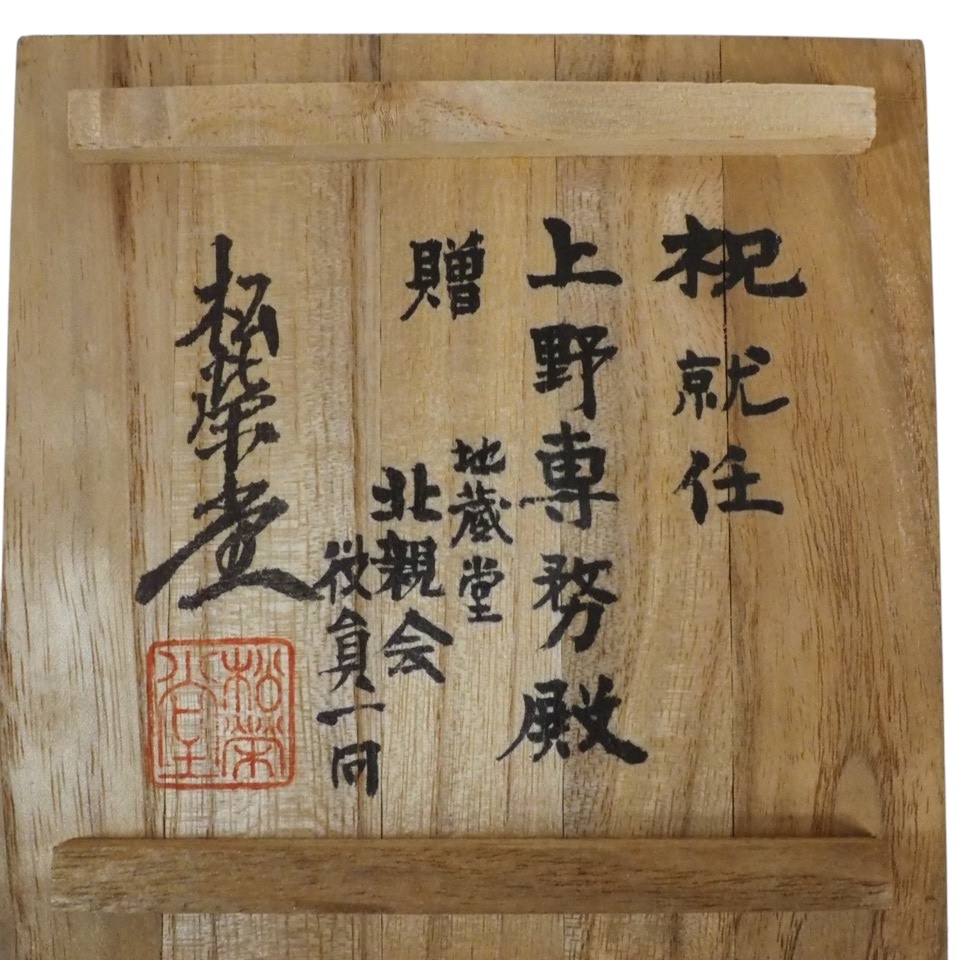 祝就任
上野専務殿
贈
地蔵堂
北親会
役員一同
松栄堂
松栄堂